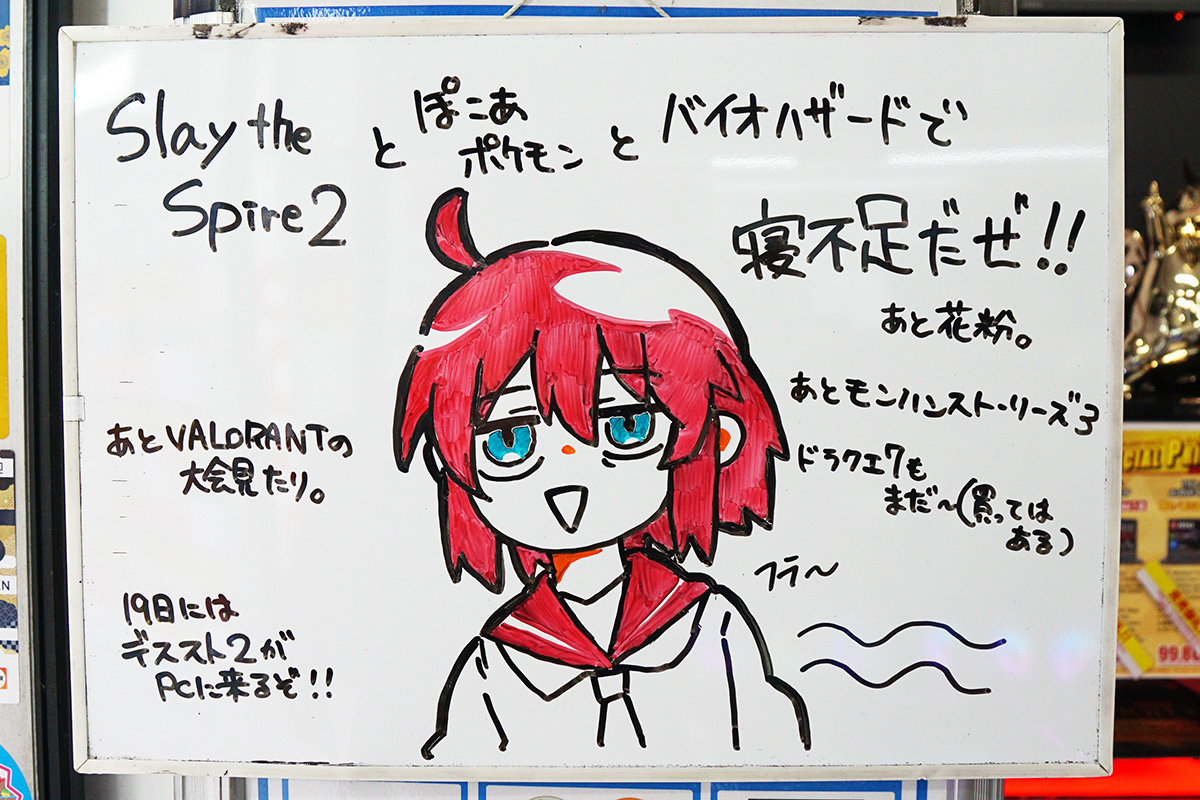 Slay the
Spire2
と
ぽこあ
ポケモン
と
バイオハザードで
寝不足だぜ!!
あと花粉。
あとモンハンストーリーズ3
ドラクエ7も
まだ〜(買っては
ある)
フラ〜
あとVALORANTの
大会見たり。
19日には
デススト2が
PCに来るぞ!!
99.80